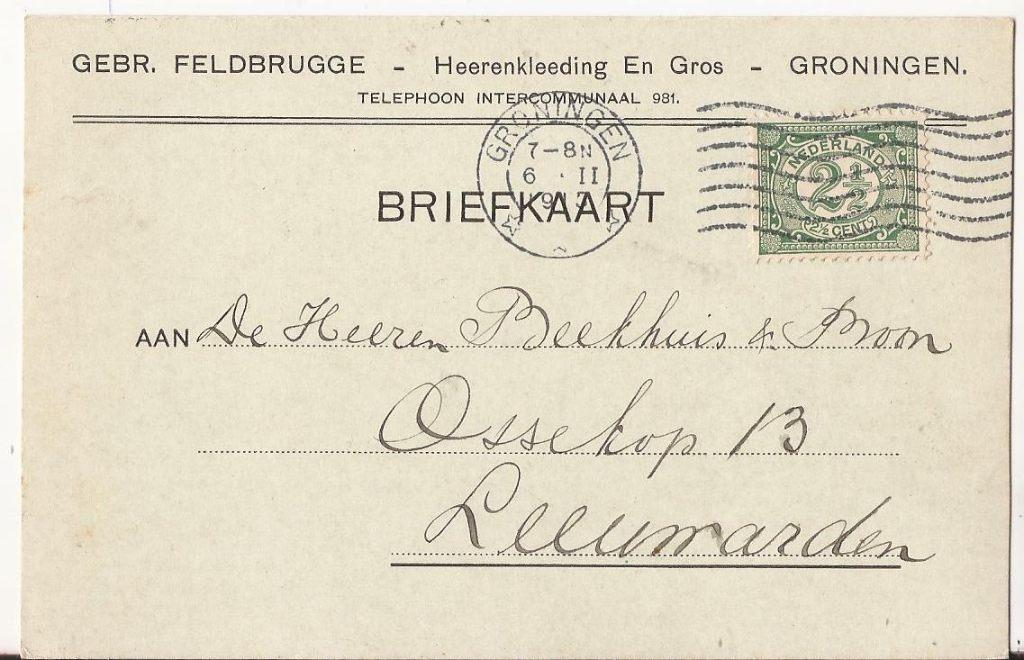 GEBR. FELDBRUGGE - Heerenkleeding En Gros - GRONINGEN.
TELEPHOON INTERCOMMUNAAL 981.
GRONINGEN
7-8N
6 · II
NEDERLAND
2½
2½ CENT
BRIEFKAART
AAN De Heeren Beekhuis & Proon
Ossekop 13
Leeuwarden